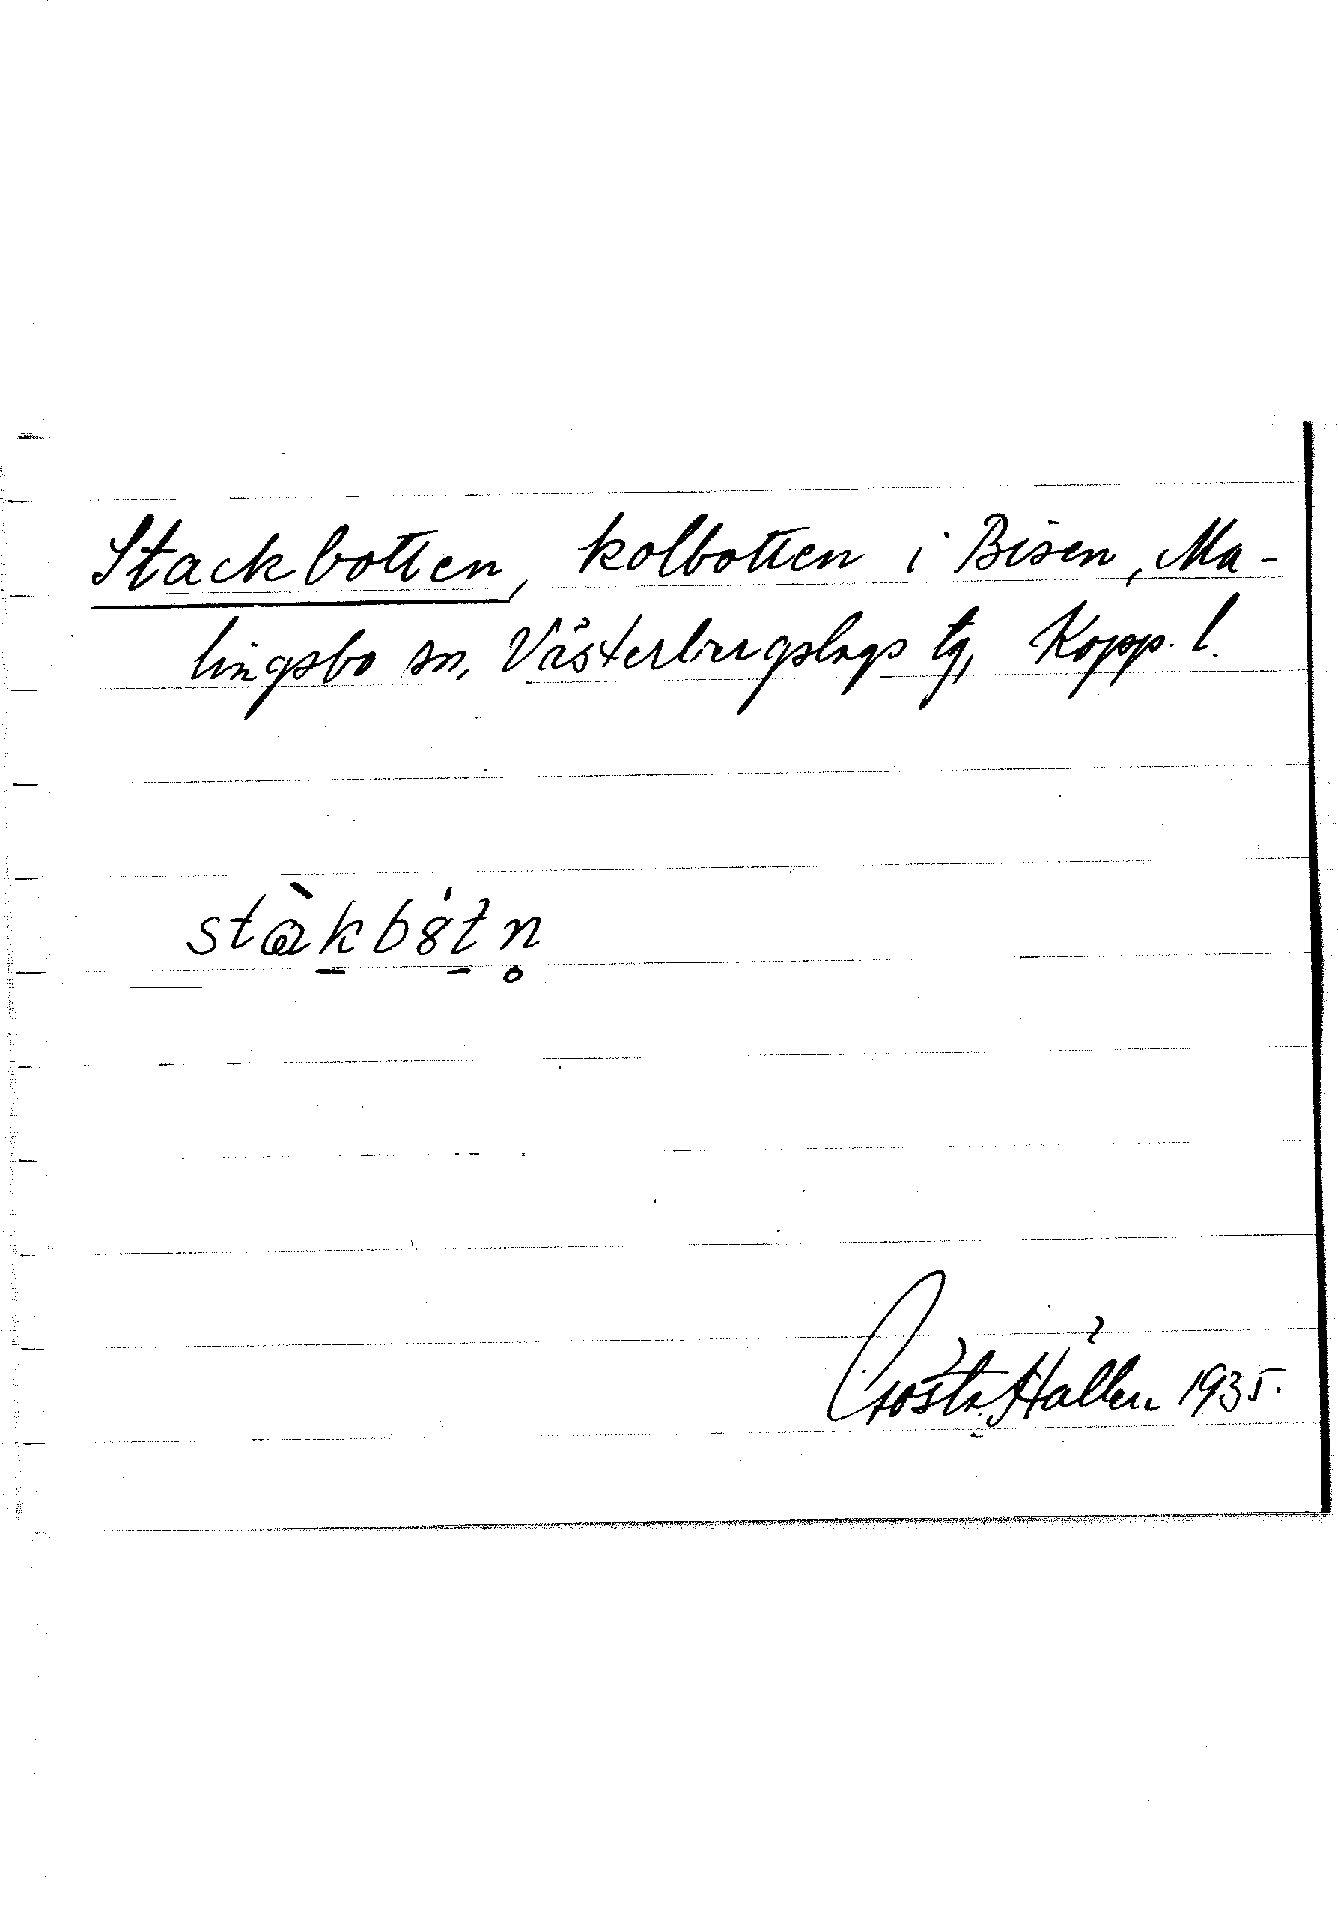 Stackbotten, kolbotten i Bisen, Ma-
lingsbo sn, Västerbergslags tg, Kopp. l.
stàkb8́tn̥
Gösta Hällen 1935.